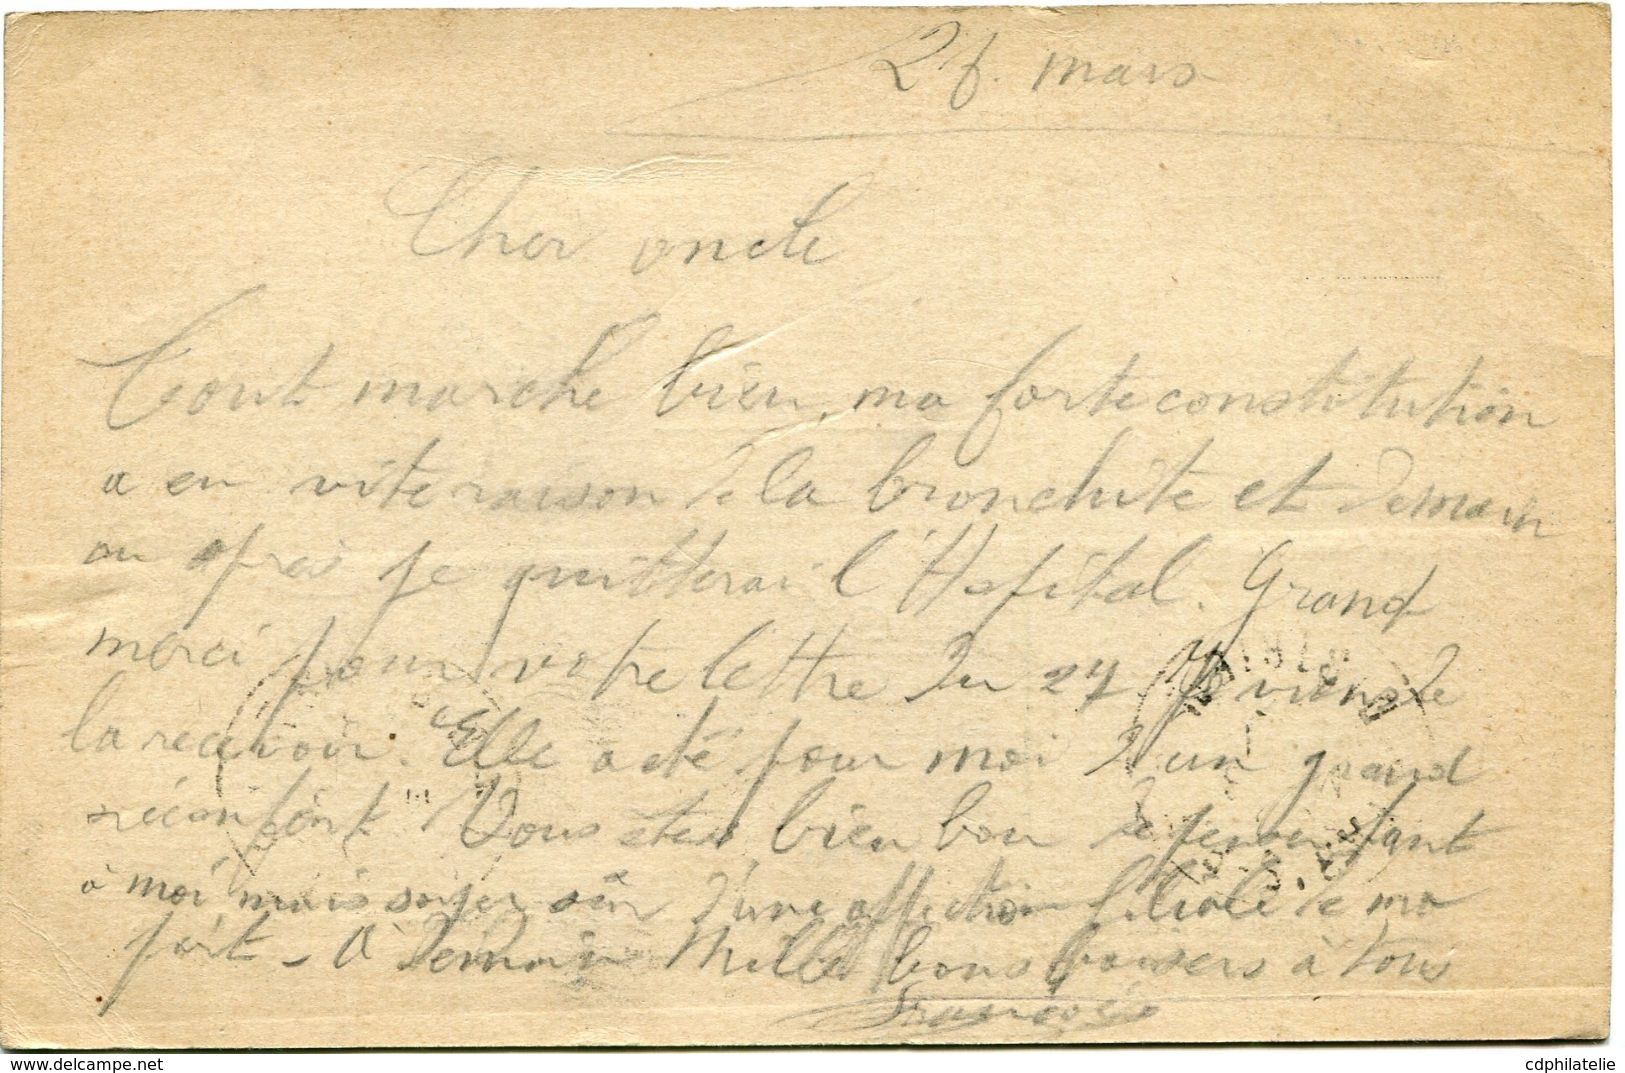 mars
Cher oncle
Tout marche bien, ma forte constitution
a eu vite raison de la bronchite et demain
ou après je quitterai l'Hopital. Grand
merci pour votre lettre du 27. Je viens de
la recevoir. Elle a été pour moi d'un grand
réconfort. Vous etes bien bon de penser tant
à moi mais soyez sûr d'une affection filiale de ma
part - A demain Mille bons baisers à tous
François
cdphilatelie